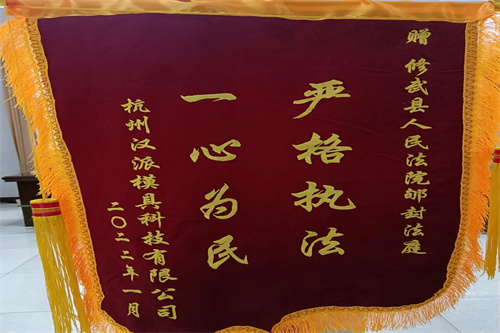 赠 修武县人民法院郇封法庭
严格执法
一心为民
杭州汉派模具科技有限公司
二〇二二年一月